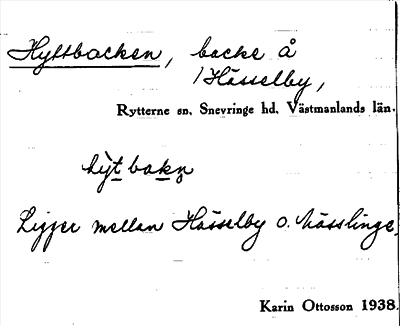 Hyttbacken, backe å
/Hässelby,
Rytterne sn. Snevringe hd. Västmanlands län.
hy̆t bakn̥
Ligger mellan Hässelby o. Nässlinge.
Karin Ottosson 1938.